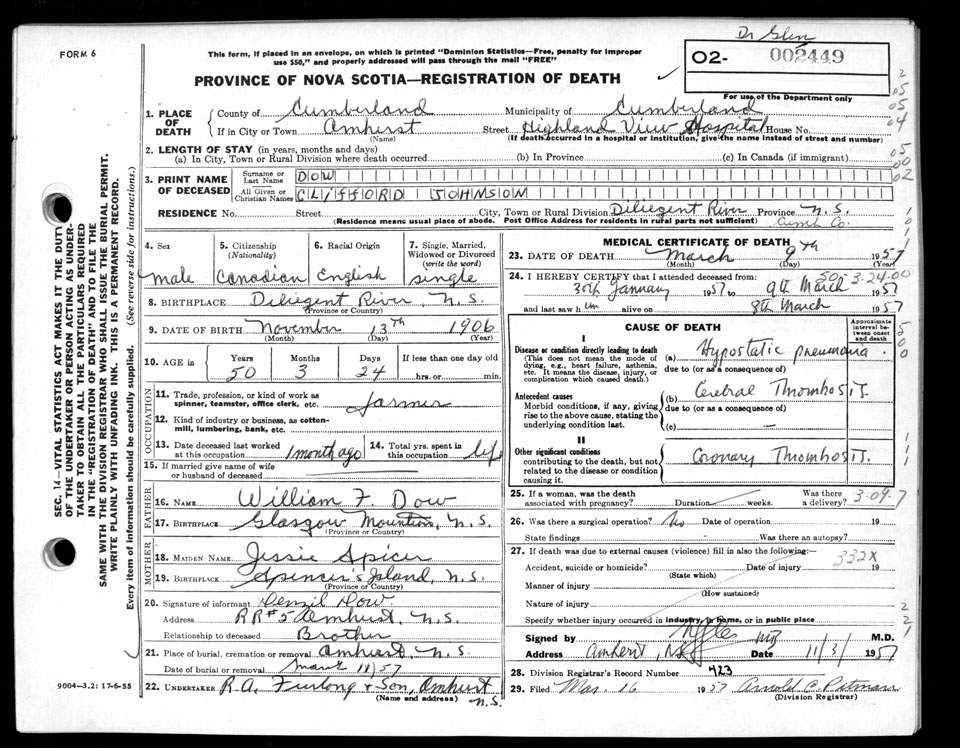 Dr Glen
FORM 6
This form, if placed in an envelope, on which is printed "Dominion Statistics—Free, penalty for improper
use $50," and properly addressed will pass through the mail "FREE"
O2- 002449
For use of the Department only
PROVINCE OF NOVA SCOTIA—REGISTRATION OF DEATH
1. PLACE OF DEATH
County of Cumberland Municipality of Cumberland
If in City or Town Amherst Street Highland View Hospital House No.
(Name) (If death occurred in a hospital or institution, give the name instead of street and number)
2. LENGTH OF STAY (in years, months and days)
(a) In City, Town or Rural Division where death occurred (b) In Province (c) In Canada (if immigrant)
3. PRINT NAME OF DECEASED
Surname or Last Name DOW
All Given or Christian Names CLIFFORD JOHNSON
RESIDENCE No. Street City, Town or Rural Division Diliegent River Province N.S.
(Residence means usual place of abode. Post Office Address for residents in rural parts not sufficient) Cumb. Co.
4. Sex
male
5. Citizenship (Nationality)
Canadian
6. Racial Origin
English
7. Single, Married, Widowed or Divorced (write the word)
single
8. BIRTHPLACE Diliegent River N.S.
(Province or Country)
9. DATE OF BIRTH November 13th 1906
(Month) (Day) (Year)
10. AGE in Years Months Days If less than one day old
50 3 24 hrs. or min.
OCCUPATION
11. Trade, profession, or kind of work as
spinner, teamster, office clerk, etc. farmer
12. Kind of industry or business, as cotton-
mill, lumbering, bank, etc.
13. Date deceased last worked
at this occupation 1 month ago
14. Total yrs. spent in
this occupation life
15. If married give name of wife
or husband of deceased
FATHER
16. NAME William F. Dow
17. BIRTHPLACE Glasgow Mountion, N.S.
(Province or Country)
MOTHER
18. MAIDEN NAME Jessie Spicer
19. BIRTHPLACE Spencer's Island, N.S.
(Province or Country)
20. Signature of informant Denzil Dow.
Address RR#5 Amherst, N.S.
Relationship to deceased Brother
21. Place of burial, cremation or removal Amherst, N.S.
Date of burial or removal March 11/57
22. UNDERTAKER R.A. Furlong & Son, Amherst
(Name and address) N.S.
MEDICAL CERTIFICATE OF DEATH
23. DATE OF DEATH March 9th 1957
(Month) (Day)
50-3-24.00
24. I HEREBY CERTIFY that I attended deceased from:
30th January 1957 to 9th March 1957
and last saw him alive on 8th March 1957
CAUSE OF DEATH
Approximate interval between onset and death
I
Disease or condition directly leading to death
(This does not mean the mode of
dying, e.g., heart failure, asthenia,
etc. It means the disease, injury, or
complication which caused death.)
(a) Hypostatic pneumonia.
due to (or as a consequence of)
Antecedent causes
Morbid conditions, if any, giving
rise to the above cause, stating the
underlying condition last.
(b) Cerebral Thrombosis.
due to (or as a consequence of)
(c) —
II
Other significant conditions
contributing to the death, but not
related to the disease or condition
causing it.
Coronary Thrombosis.
25. If a woman, was the death
associated with pregnancy? Duration weeks. Was there a delivery?
3-09.7
26. Was there a surgical operation? No Date of operation 19
State findings Was there an autopsy?
27. If death was due to external causes (violence) fill in also the following:—
332X
Accident, suicide or homicide? Date of injury 19
(State which)
Manner of injury
(How sustained)
Nature of injury
Specify whether injury occurred in industry, in home, or in public place
Signed by M.D.
Address Amherst, NS Date 11/3/ 1957
28. Division Registrar's Record Number 423
29. Filed Mar. 16 1957 Arnold C. Pitman
(Division Registrar)
SEC. 14—VITAL STATISTICS ACT MAKES IT THE DUTY
OF THE UNDERTAKER OR PERSON ACTING AS UNDER-
TAKER TO OBTAIN ALL THE PARTICULARS REQUIRED
IN THE "REGISTRATION OF DEATH" AND TO FILE THE
SAME WITH THE DIVISION REGISTRAR WHO SHALL ISSUE THE BURIAL PERMIT.
WRITE PLAINLY WITH UNFADING INK. THIS IS A PERMANENT RECORD.
Every item of information should be carefully supplied. (See reverse side for instructions.)
9004—3.2: 17-6-55